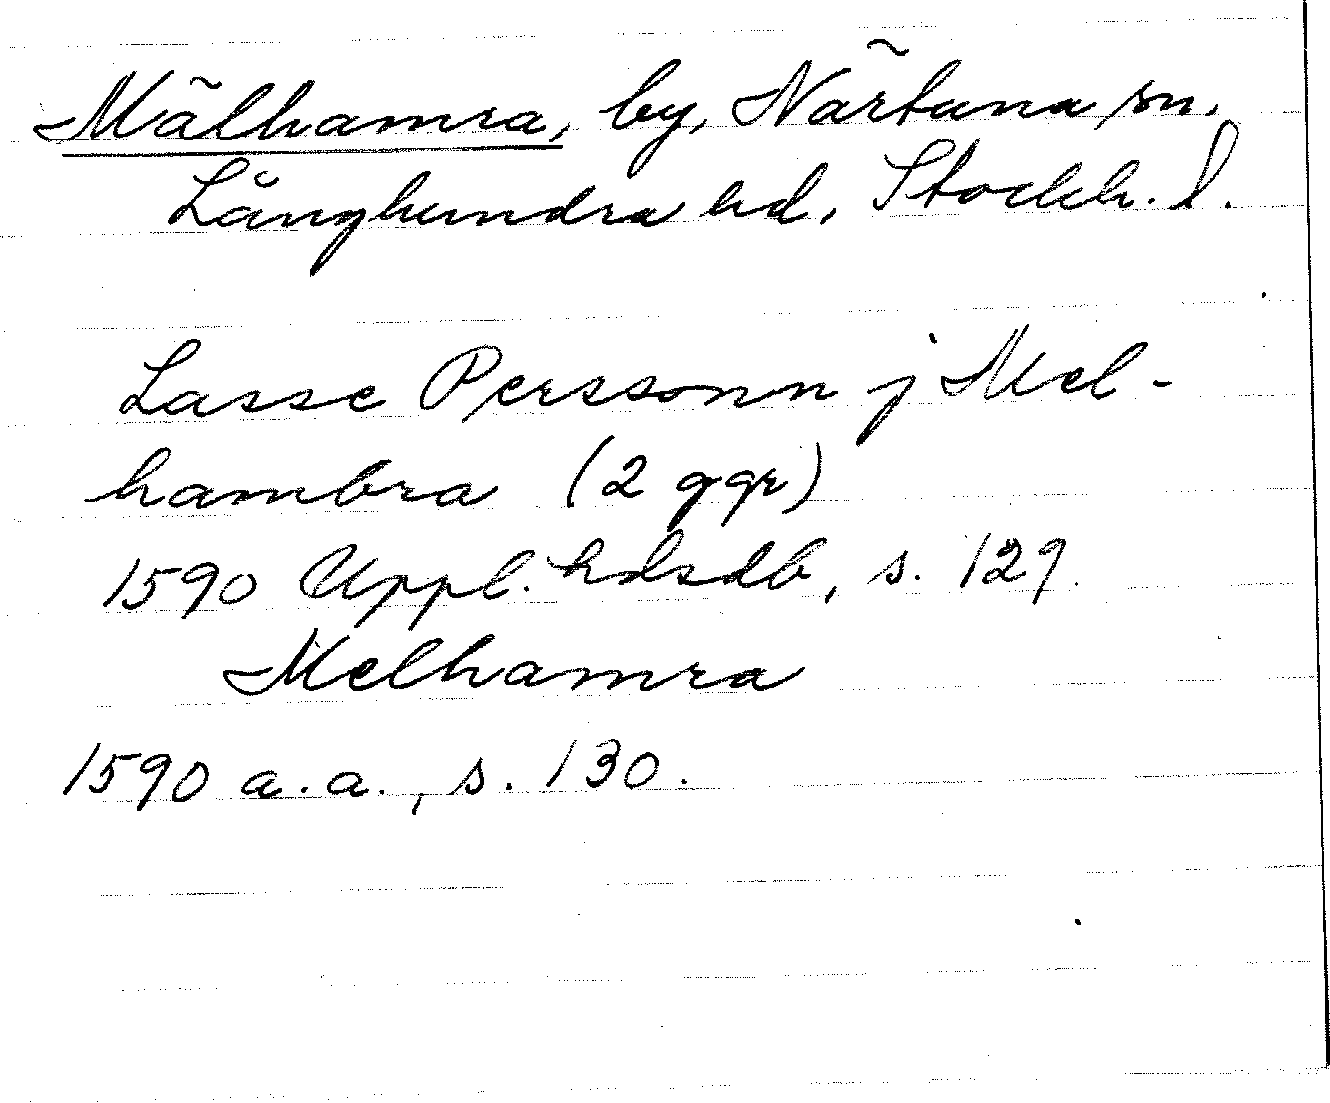 Mälhamra, by, Närtuna sn.
Långhundra hd, Stockh. l.
Lasse Perssonn j Mel-
hambra (2 ggr)
1590 Uppl. hdsdb, s. 129.
Melhamra
1590 a.a., s. 130.